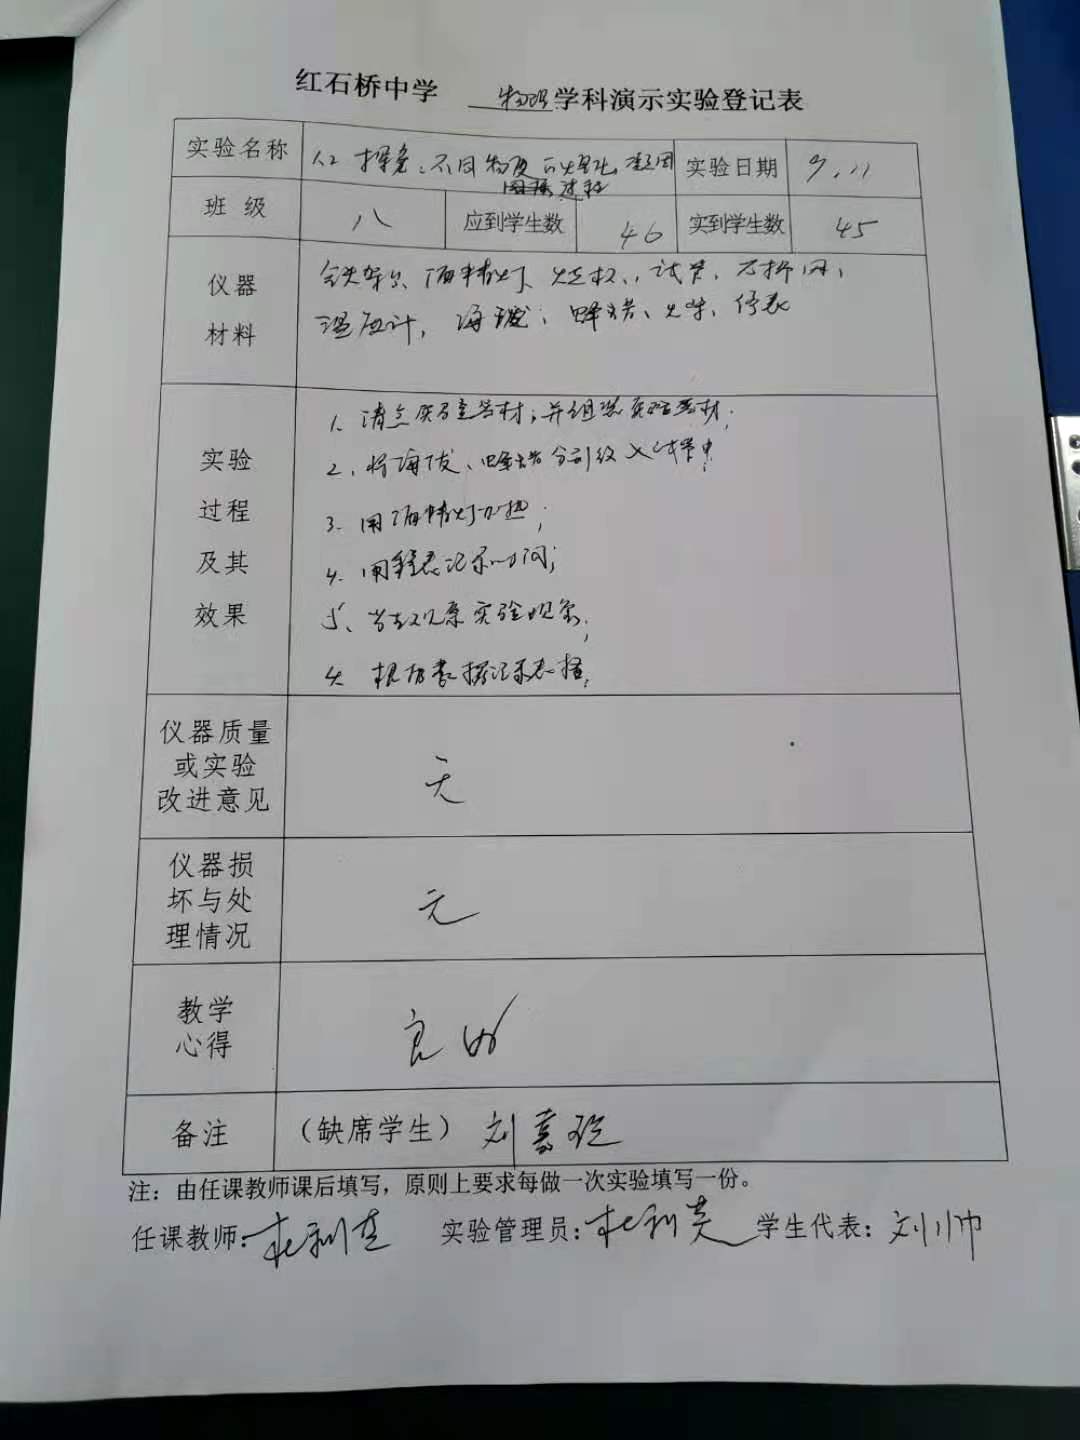 红石桥中学 物理学科演示实验登记表
实验名称 探究:不同物质的熔化凝固过程 实验日期 9.11
班级 八 应到学生数 46 实到学生数 45
仪器材料 铁架台、酒精灯、试管、石棉网、
温度计,海波、蜂蜡、火柴、停表
实验过程及其效果
1、清点实验室器材,并组装实验器材;
2、将海波、蜂蜡分别放入试管中;
3.用酒精灯加热;
4.用停表记录时间;
5、观察实验现象;
根据数据记录表格;
仪器质量或实验改进意见 无
仪器损坏与处理情况 无
教学心得 良好
备注 (缺席学生)刘
注:由任课教师课后填写,原则上要求每做一次实验填写一份。
任课教师:杜利英 实验管理员:杜利英 学生代表:刘帅